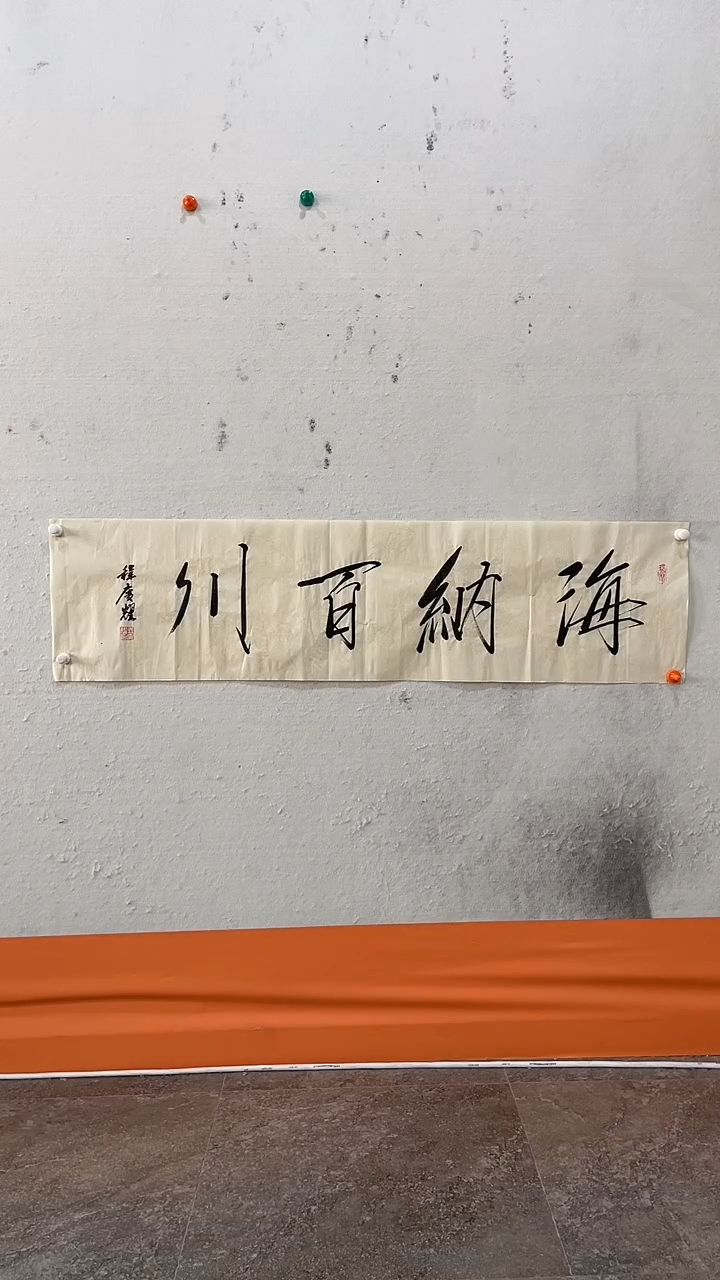 海納百川
程廣耀